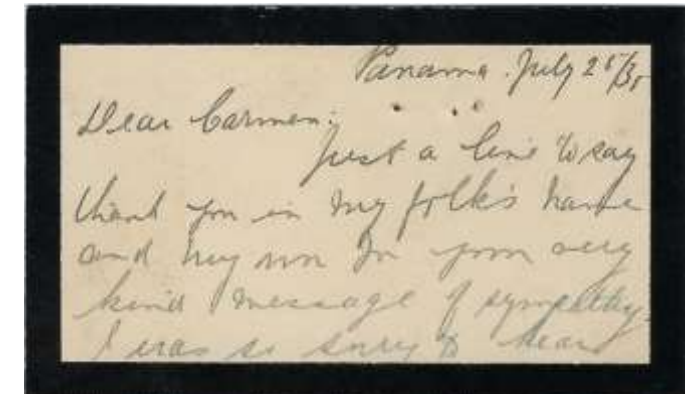 Panama. July 25/35
Dear Carmen:
Just a line to say
thank you in my folk's name
and my own for your very
kind message of sympathy.
I was so sorry to hear